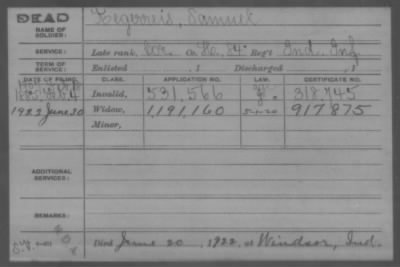 DEAD
NAME OF SOLDIER: Samuel
SERVICE: Late rank, Co. 84" Reg't Ind. Inf.
TERM OF SERVICE: Enlisted , 1 Discharged , 1
DATE OF FILING. CLASS. APPLICATION NO. LAW. CERTIFICATE NO.
Invalid, 531,566 318,745
1922 June 30 Widow, 1,191,160 917875
Minor,
ADDITIONAL SERVICES:
REMARKS:
Died June 20, 1922, at Windsor, Ind.